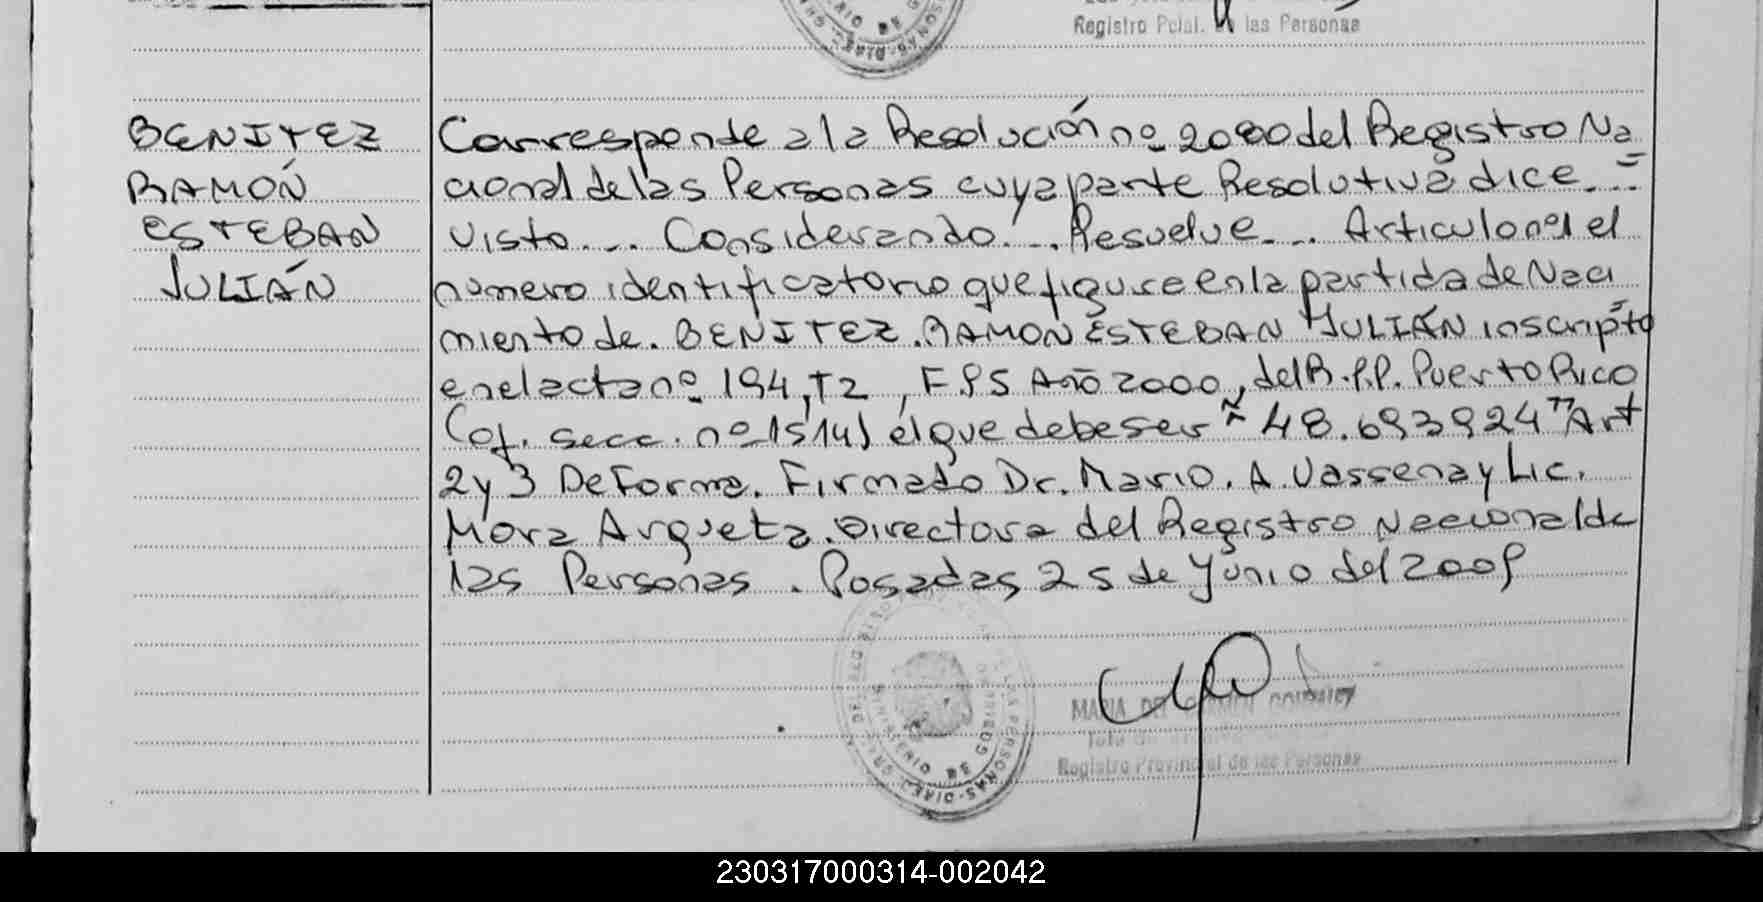 Registro Pcial. de las Personas
BENITEZ
RAMÓN
ESTEBAN
JULIÁN
Corresponde a la Resolución nº 2080 del Registro Na
cional de las Personas cuya parte Resolutiva dice...=
Visto... Considerando... Resuelve... Articulo nº1 el
número identificatorio que figura en la partida de Naci
miento de. BENITEZ. RAMON ESTEBAN JULIÁN inscripto
en el acta nº 194, T2, Fº95 Año 2000, del R.P.P. Puerto Rico
(of. secc. nº 1514) el que debe ser "48.693924" Art
2 y 3 De Forma. Firmado Dr. Mario. A. Vassena y Lic.
Mora Arqueta. Directora del Registro Nacional de
las Personas. Posadas 25 de Junio del 2009
MINISTERIO DE GOBIERNO
MARIA DEL CARMEN GONZALEZ
Registro Provincial de las Personas
230317000314-002042